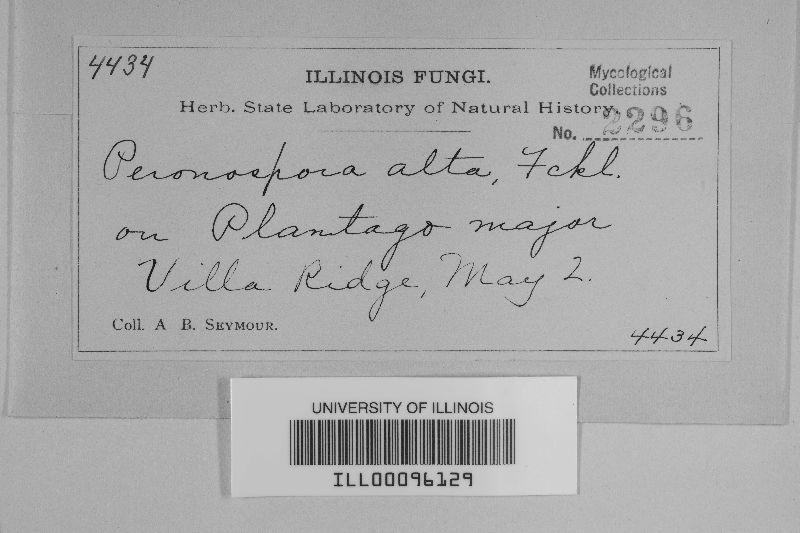 4434
ILLINOIS FUNGI.
Mycological
Collections
Herb. State Laboratory of Natural History
No. 2296
Peronospora alta, Fckl.
on Plantago major
Villa Ridge, May 2.
Coll. A B. Seymour.
4434
UNIVERSITY OF ILLINOIS
ILL00096129